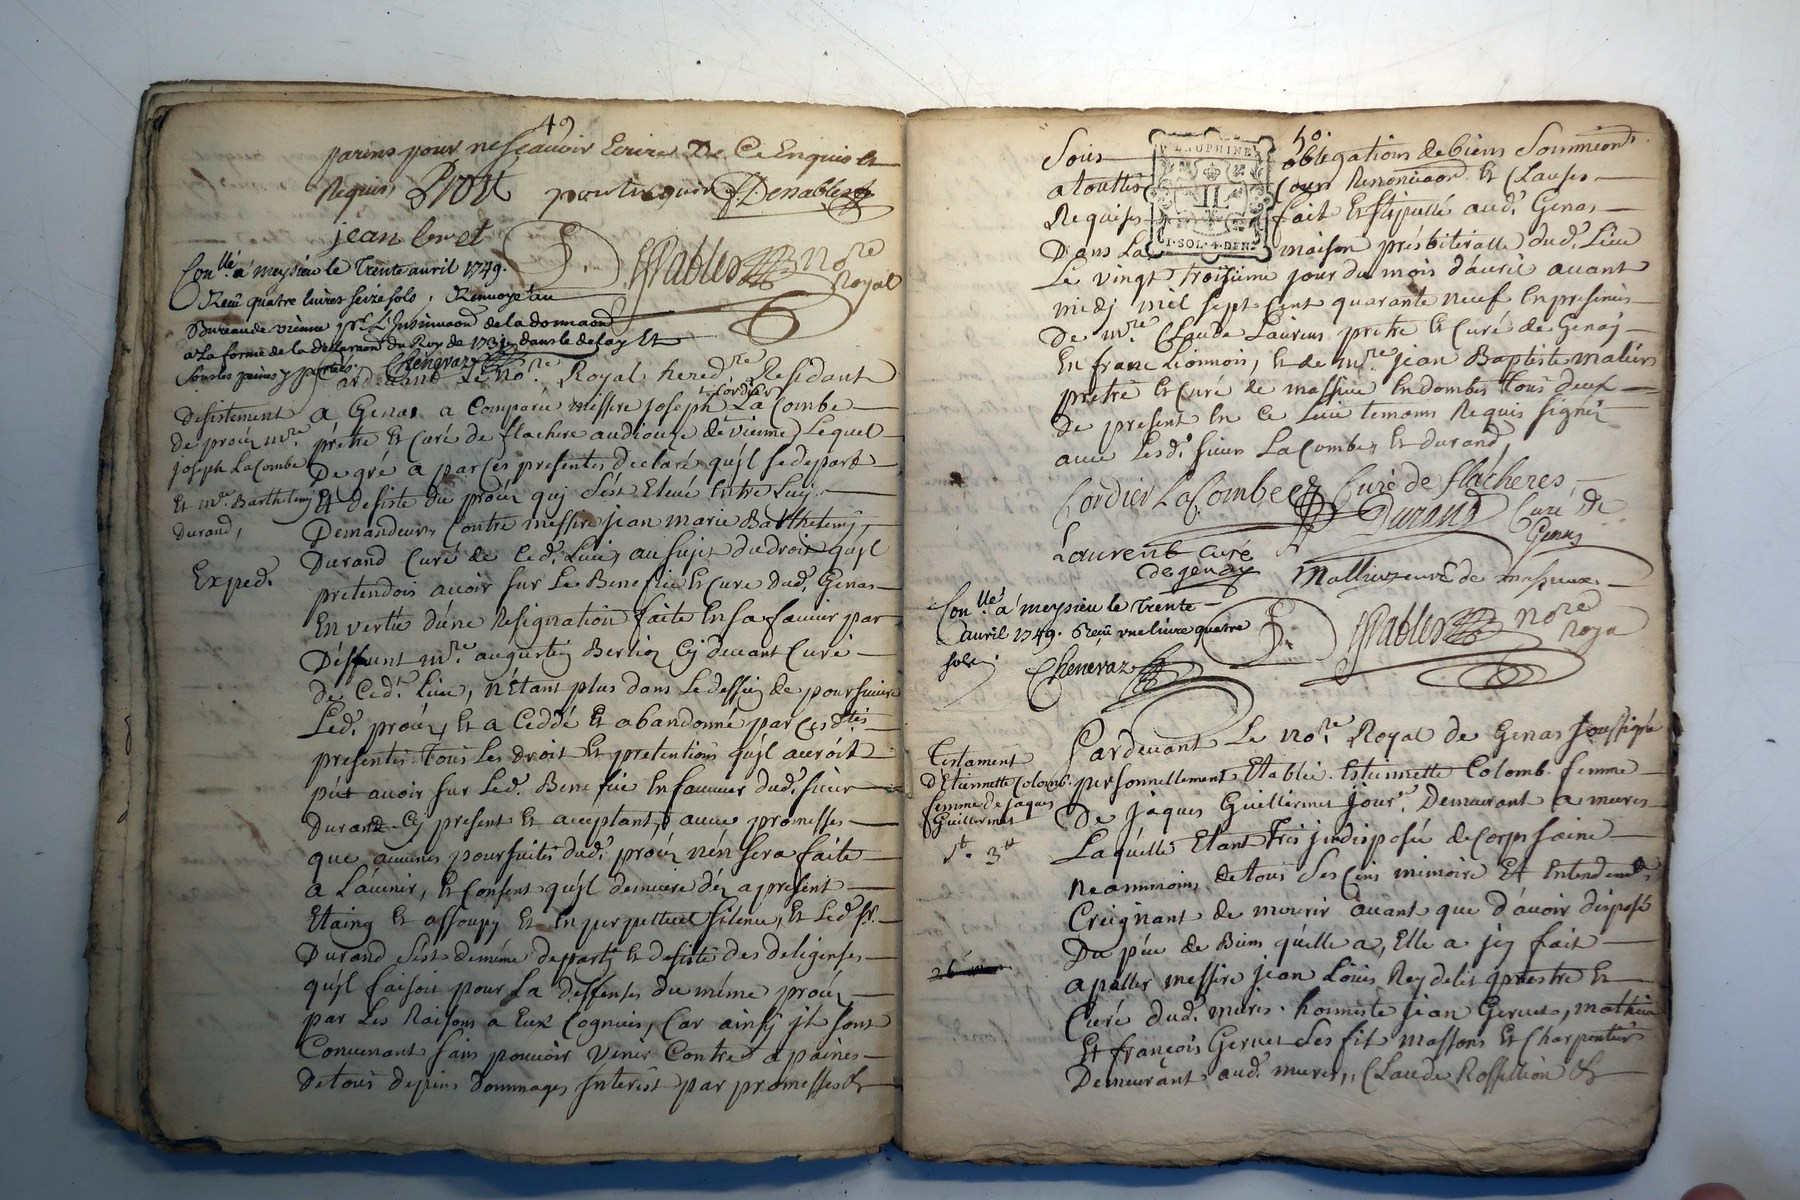 49
parens pour ne sçavoir Ecrire De Ce Enquis et
Requis, Prost
jean
Con.llé a meysieu le Trente avril 1749.
Reçu quatre livres seize sols, Renvoyé au
Bureau de vienne pr. L'Insinuaon de la donnaon
a La forme de la declaraon du Roy de 1731, dans le delay Et
Sous les peines y portés. Chenevaz
nore
Royal
Pardevant Le nore. Royal hered.re Residant
Cordier
a Genas a Comparu messire joseph La Combe
prêtre Et Curé de flachere au diocese de vienne, Lequel
De gré a par ces presentes declaré qu'jl se depart
Et desiste du procez quj s'est Elevé Entre Luy
Demandeur, Contre messire jean marie Barthelemy
Durand Curé de Ced. Lieu, au sujet du droit qu'jl
pretendois avoir sur Le Benefice Et Cure dud. Genas
En vertue d'une Resignation faite En sa faveur par
Deffunt m.re augustin Cy devant Curé
de Ced. Lieu, N'Etant plus dans Le dessein de poursuivre
Led. procez, Et a Ceddé Et abandonné par ces d.tes
presentes Tous Les droit Et pretentions qu'jl auroit
put avoir sur Led. Benefice En faveur dud. sieur
Durand Cy present Et aceptant, avec promesses
que aucunes poursuites dud. procez n'en sera faite
a L'avenir, Et Consent qu'jl demeure déz apresent
Etaing Et assoupy Et En perpettuel silence, Et Led. sr.
Durand s'est demême departy Et desisté des deligences
qu'jl faisoit pour La deffenses du même procez
par Les Raisons a Eux Cognues, Car ainsy jls sont
Convenant sans pouvoir venir Contre a paines
de tous depens dommages Interêst par promesses &
Desistement
de procez m.re
joseph La Combe
Et m.re Barthelemy
Durand,
Exped.
50.
DAUPHINE
1·SOL·4·DEN
Sous obligations de biens Soumissions
a touttes Cours Renonciaon Et Clauses
Requises fait Et stipullé aud. Genas
Dans La maison présbiteralle dud. Lieu
Le vingt troisieme jour du mois d'avril avant
midj mil sept Cent quarante neuf En presences
De m.re Claude Laurens prêtre Et Curé de Genay
En franc Lionnois, Et de m.re jean Baptiste
prêtre Et Curé de massieu En dombes Tous deux
De present En Ce Lieu temoins Requis signés
avec Lesd. sieurs La Combe, Et durand
Cordier La Combe Curé de flacheres
Durand Curé de
Genas
Laurent curé
de genay
curé de
nore
Roya
Con.llé a meysieu le Trente
avril 1749. Reçu une livre quatre
sols.
Chenevaz
Pardevant Le nore. Royal de Genas soussigné
personnellement Etablie Estiennette Colomb femme
De jaques Guillermet jour.r Demeurant a mures
Laquelle Etant Trés jndisposée de Corps saine
Neammoins de tous ses Cens memoire Et Entendem.t
Creignant de mourir avant que d'avoir disposé
Du peu de Biens qu'elle a, Elle a jcy fait
apeller messire jean Louis Rey prestre Et
Curé dud. mures. honneste jean Gervet, mathieu
Et françois Gervet ses fils massons Et Charpentier
Demeurant aud. mures, Claude &
Testament
D'Etiennette Colomb.
femme de jaques
Guillermet